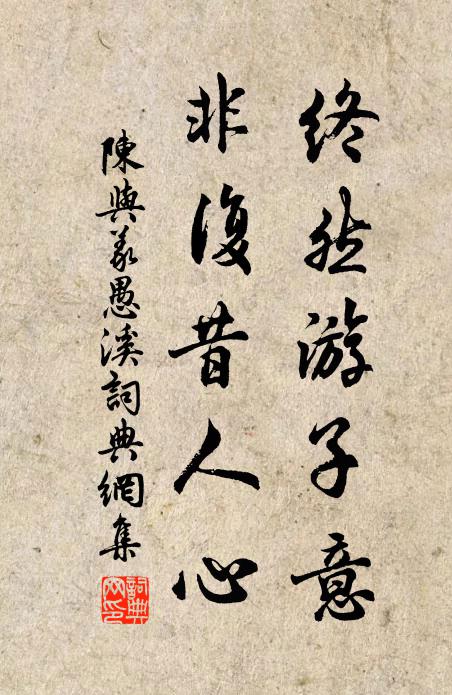 終然游子意
非復昔人心
陳與義愚溪詞典網集
詞典網印